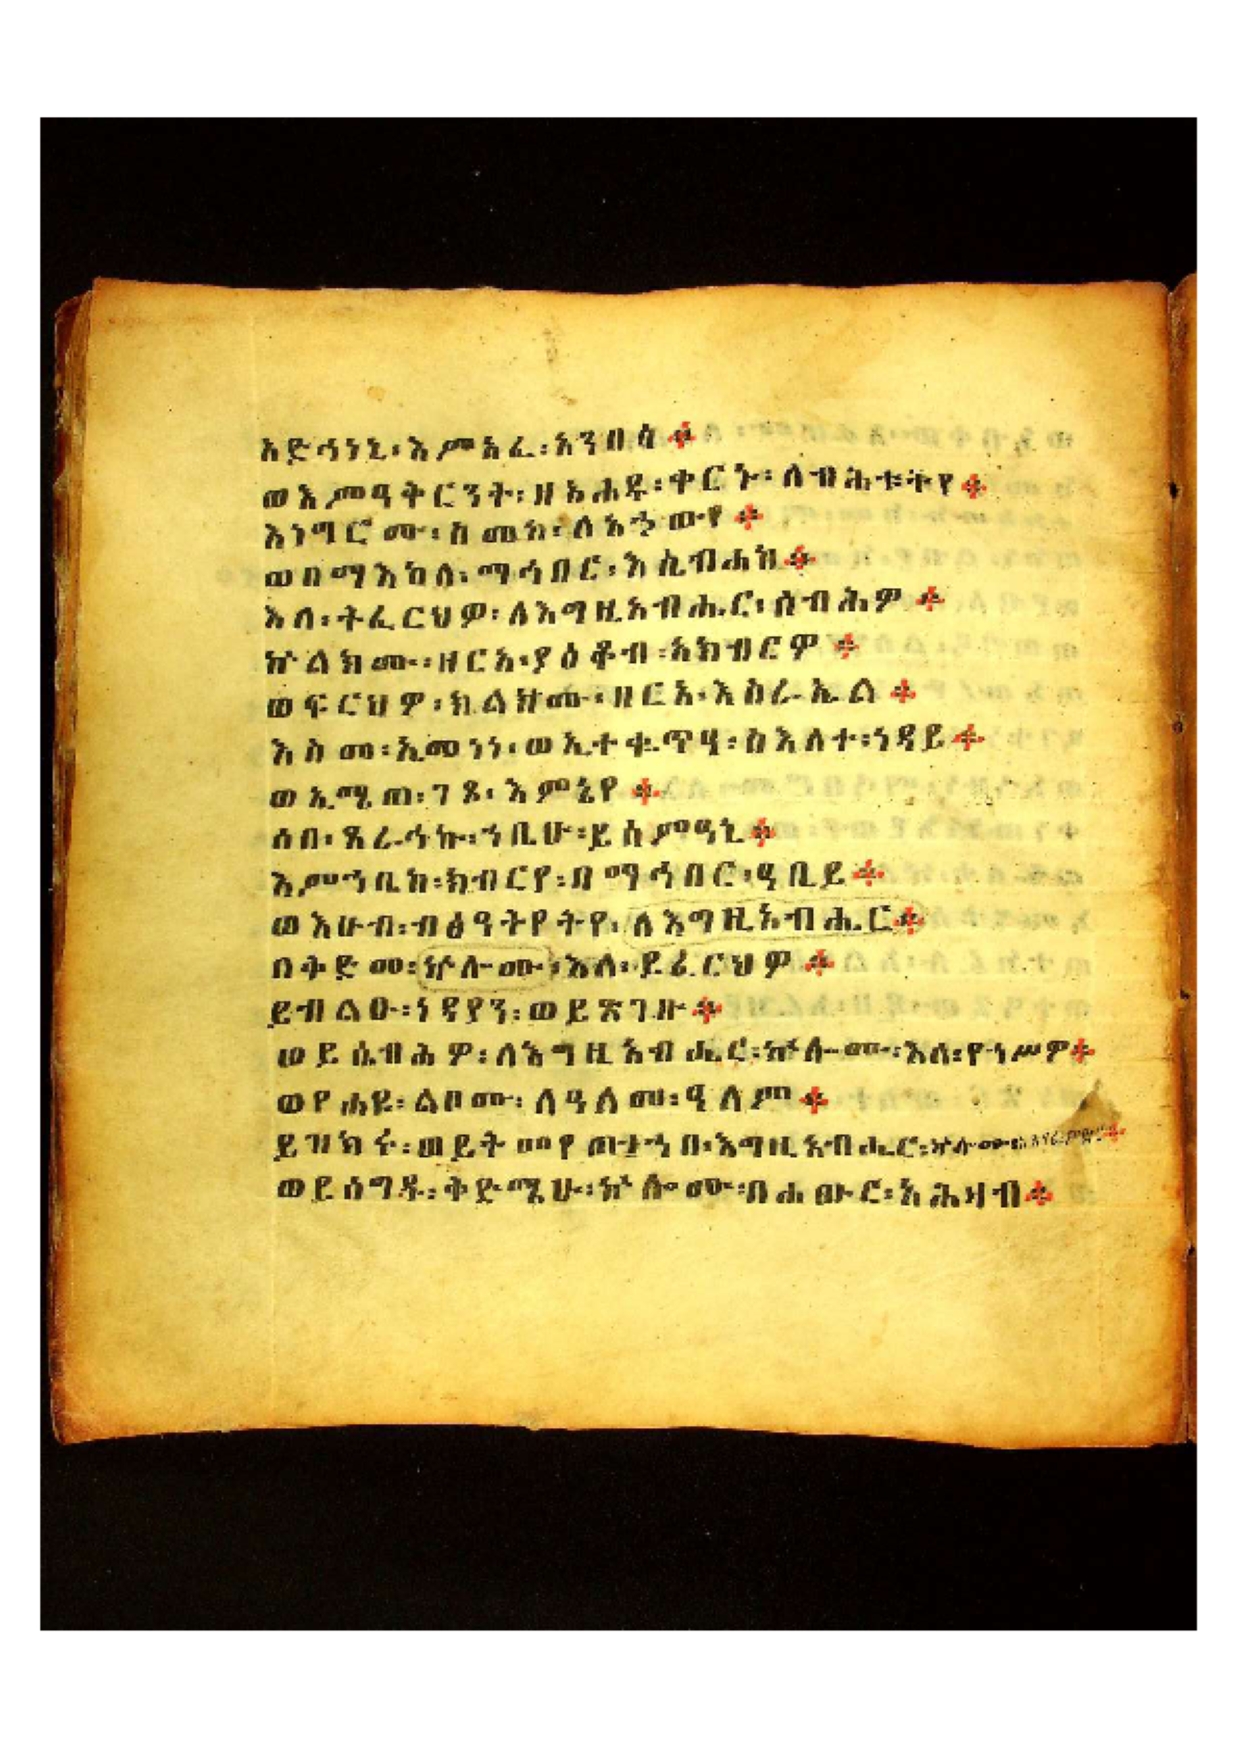 አድኅነነኒ፡እምአፈ፡አንበሳ፨
ወእምዓቅርንት፡ዘአሐዱ፡ቀርኑ፡ለብሕቱትየ፨
እነግሮሙ፡ስመከ፡ለአኀውየ፨
ወበማእከለ፡ማኅበር፡እሴብሐከ፨
እለ፡ትፈርህዎ፡ለእግዚአብሔር፡ሰብሕዎ፨
ኵልክሙ፡ዘርአ፡ያዕቆብ፡አክብርዎ፨
ወፍርህዎ፡ክልክሙ፡ዘርአ፡እስራኤል፨
እስመ፡ኢመነነ፡ወኢተቈጥዓ፡ስእለተ፡ነዳይ፨
ወኢሜጠ፡ገጾ፡እምኔየ፨
ሰበ፡ጸራኅኩ፡ኀቤሁ፡ይሰምዓኒ፨
እምኀቤከ፡ክብርየ፡በማኅበር፡ዓቢይ፨
ወእሁብ፡ብፅዓትየትየ፡ለእግዚአብሔር፨
በቅድመ፡ኵሎሙ፡እለ፡ይፈርህዎ፨
ይብልዑ፡ነዳያን፡ወይጽገቡ፨
ወይሴብሕዎ፡ለእግዚአብሔር፡ኵሎሙ፡እለ፡የኀሥዎ፨
ወየሐዩ፡ልቦሙ፡ለዓለመ፡ዓለም፨
ይዝክሩ፡ወይትመየጡ፡ኀበ፡እግዚአብሔር፡ኵሎሙ፡አጽናፈ፡ምድር፨
ወይሰግዱ፡ቅድሜሁ፡ኵሎሙ፡በሐውርተ፡አሕዛብ፨